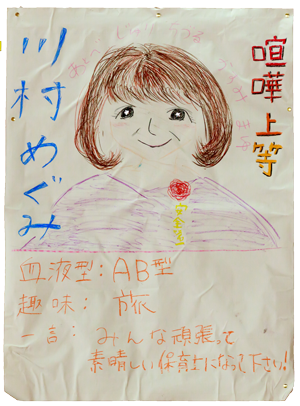 喧嘩上等
川村めぐみ
血液型：AB型
趣味： 旅
一言： みんな頑張って
素晴しい保育士になって下さい！